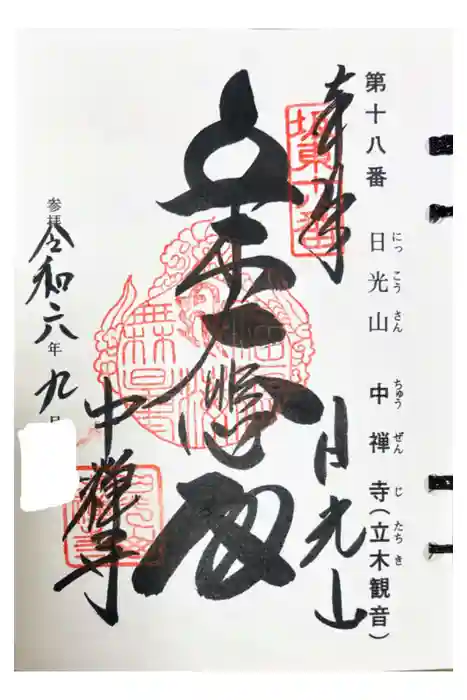 第十八番 日光山 中禅寺(立木観音)
にっこうさん ちゅうぜんじ たちき
奉拝
坂東十八番
日光山
立木大悲殿
中禅寺
参拝 令和六年 九月